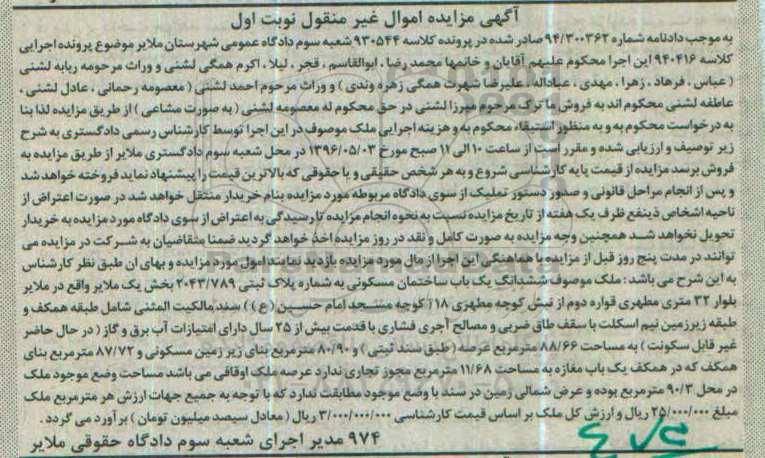 آگهی مزایده اموال غیر منقول نوبت اول
به موجب دادنامه شماره ۹۴/۳۰۰۳۶۲ صادر شده در پرونده کلاسه ۹۳۰۵۴۴ شعبه سوم دادگاه عمومی شهرستان ملایر موضوع پرونده اجرایی
کلاسه ۹۴۰۴۱۶ این اجرا محکوم علیهم آقایان و خانمها محمد رضا ، ابوالقاسم ، قجر ، لیلا ، اکرم همگی لشنی و وراث مرحومه ربابه لشنی
( عباس ، فرهاد ، زهرا ، مهدی ، عبداله ، علیرضا شهرت همگی زهره وندی ) و وراث مرحوم احمد لشنی ( معصومه رحمانی ، عادل لشنی ،
عاطفه لشنی محکوم اند به فروش ما ترک مرحوم میرزا لشنی در حق محکوم له معصومه لشنی ( به صورت مشاعی ) از طریق مزایده لذا بنا
به درخواست محکوم به و به منظور استیفاء محکوم به و هزینه اجرایی ملک موصوف در این اجرا توسط کارشناس رسمی دادگستری به شرح
زیر توصیف و ارزیابی شده و مقرر است از ساعت ۱۰ الی ۱۱ صبح مورخ ۱۳۹۶/۰۵/۰۳ در محل شعبه سوم دادگستری ملایر از طریق مزایده به
فروش برسد مزایده از قیمت پایه کارشناسی شروع و به هر شخص حقیقی و یا حقوقی که بالاترین قیمت را پیشنهاد نماید فروخته خواهد شد
و پس از انجام مراحل قانونی و صدور دستور تملیک از سوی دادگاه مربوطه مورد مزایده بنام خریدار منتقل خواهد شد در صورت اعتراض از
ناحیه اشخاص ذینفع ظرف یک هفته از تاریخ مزایده نسبت به نحوه انجام مزایده تا رسیدگی به اعتراض از سوی دادگاه مورد مزایده به خریدار
تحویل نخواهد شد همچنین وجه مزایده به صورت کامل و نقد در روز مزایده اخذ خواهد گردید ضمنا متقاضیان به شرکت در مزایده می
توانند در مدت پنج روز قبل از مزایده با هماهنگی این اجرا از مال مورد مزایده بازدید نمایند اموال مورد مزایده و بهای ان طبق نظر کارشناس
به این شرح می باشد : ملک موصوف ششدانگ یک باب ساختمان مسکونی به شماره پلاک ثبتی ۲۰۴۳/۷۸۹ بخش یک ملایر واقع در ملایر
بلوار ۳۲ متری مطهری قواره دوم از نبش کوچه مطهری ۱۸ ( کوچه مسجد امام حسین ( ع ) ) سند مالکیت المثنی شامل طبقه همکف و
طبقه زیرزمین نیم اسکلت با سقف طاق ضربی و مصالح آجری فشاری با قدمت بیش از ۲۵ سال دارای امتیازات آب برق و گاز ( در حال حاضر
غیر قابل سکونت ) به مساحت ۸۸/۶۶ مترمربع عرصه ( طبق سند ثبتی ) و ۸۰/۹۰ مترمربع بنای زیر زمین مسکونی و ۸۷/۷۲ مترمربع بنای
همکف که در همکف یک باب مغازه به مساحت ۱۱/۶۸ مترمربع مجوز تجاری ندارد عرصه ملک اوقافی می باشد مساحت وضع موجود ملک
در محل ۹۰/۳ مترمربع بوده و عرض شمالی زمین در سند با وضع موجود مطابقت ندارد که با توجه به جمیع جهات ارزش هر مترمربع ملک
مبلغ ۲۵/۰۰۰/۰۰۰ ریال و ارزش کل ملک بر اساس قیمت کارشناسی ۳/۰۰۰/۰۰۰/۰۰۰ ریال ( معادل سیصد میلیون تومان ) بر آورد می گردد .
۹۷۴ مدیر اجرای شعبه سوم دادگاه حقوقی ملایر